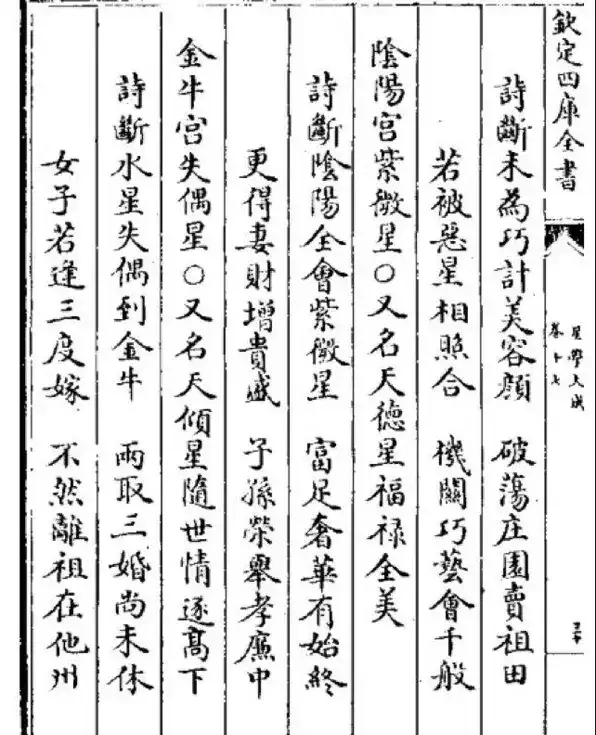 欽定四庫全書
星學大成
卷十七
三十
詩斷未為巧計美容顔 破蕩庄園賣祖田
若被惡星相照合 機關巧藝會千般
陰陽宫紫微星○又名天德星福禄全美
詩斷陰陽全會紫微星 富足奢華有始終
更得妻財增貴盛 子孫榮舉孝廉中
金牛宫失偶星○又名天傾星隨世情逐高下
詩斷水星失偶到金牛 兩取三婚尚未休
女子若逢三度嫁 不然離祖在他州